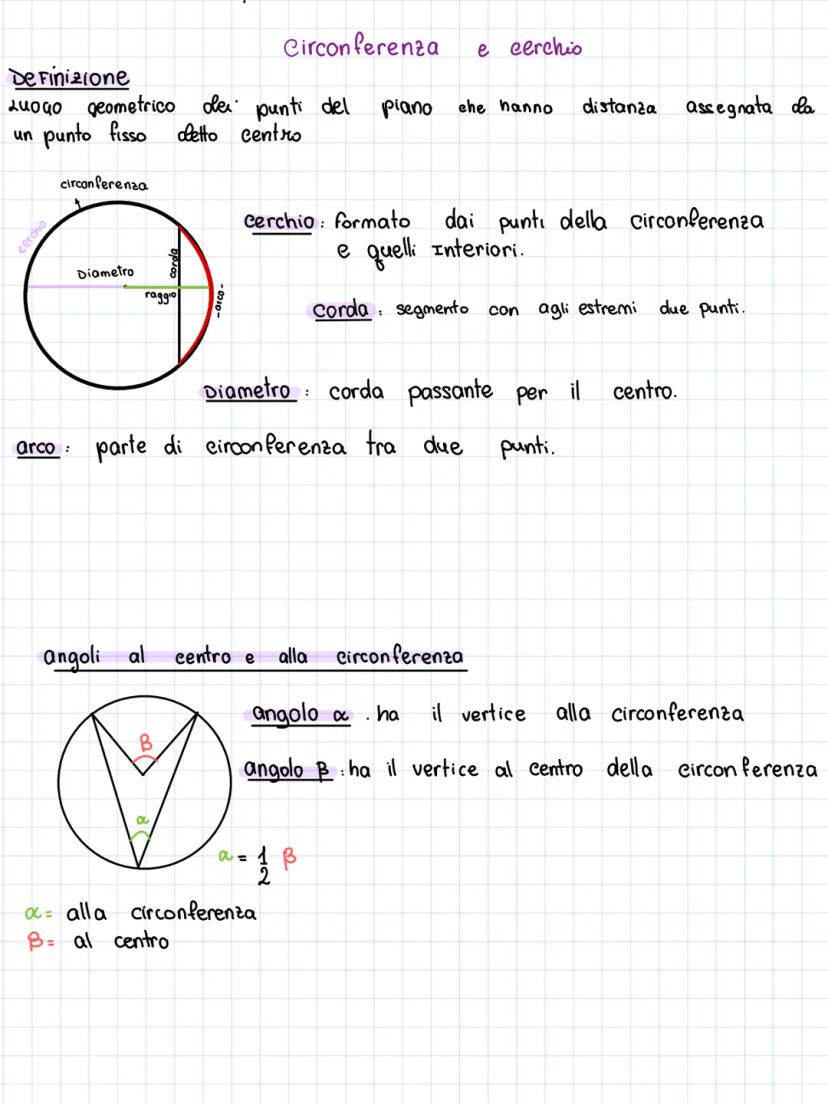 Circonferenza e cerchio
Definizione
Luogo geometrico dei punti del piano che hanno distanza assegnata da
un punto fisso detto centro
circonferenza
cerchio
Diametro
corda
raggio
-arco-
cerchio: formato dai punti della circonferenza
e quelli interiori.
corda: segmento con agli estremi due punti.
Diametro: corda passante per il centro.
arco: parte di circonferenza tra due punti.
angoli al centro e alla circonferenza
β
α
angolo α. ha il vertice alla circonferenza
angolo β: ha il vertice al centro della circonferenza
α = 1/2 β
α= alla circonferenza
β= al centro